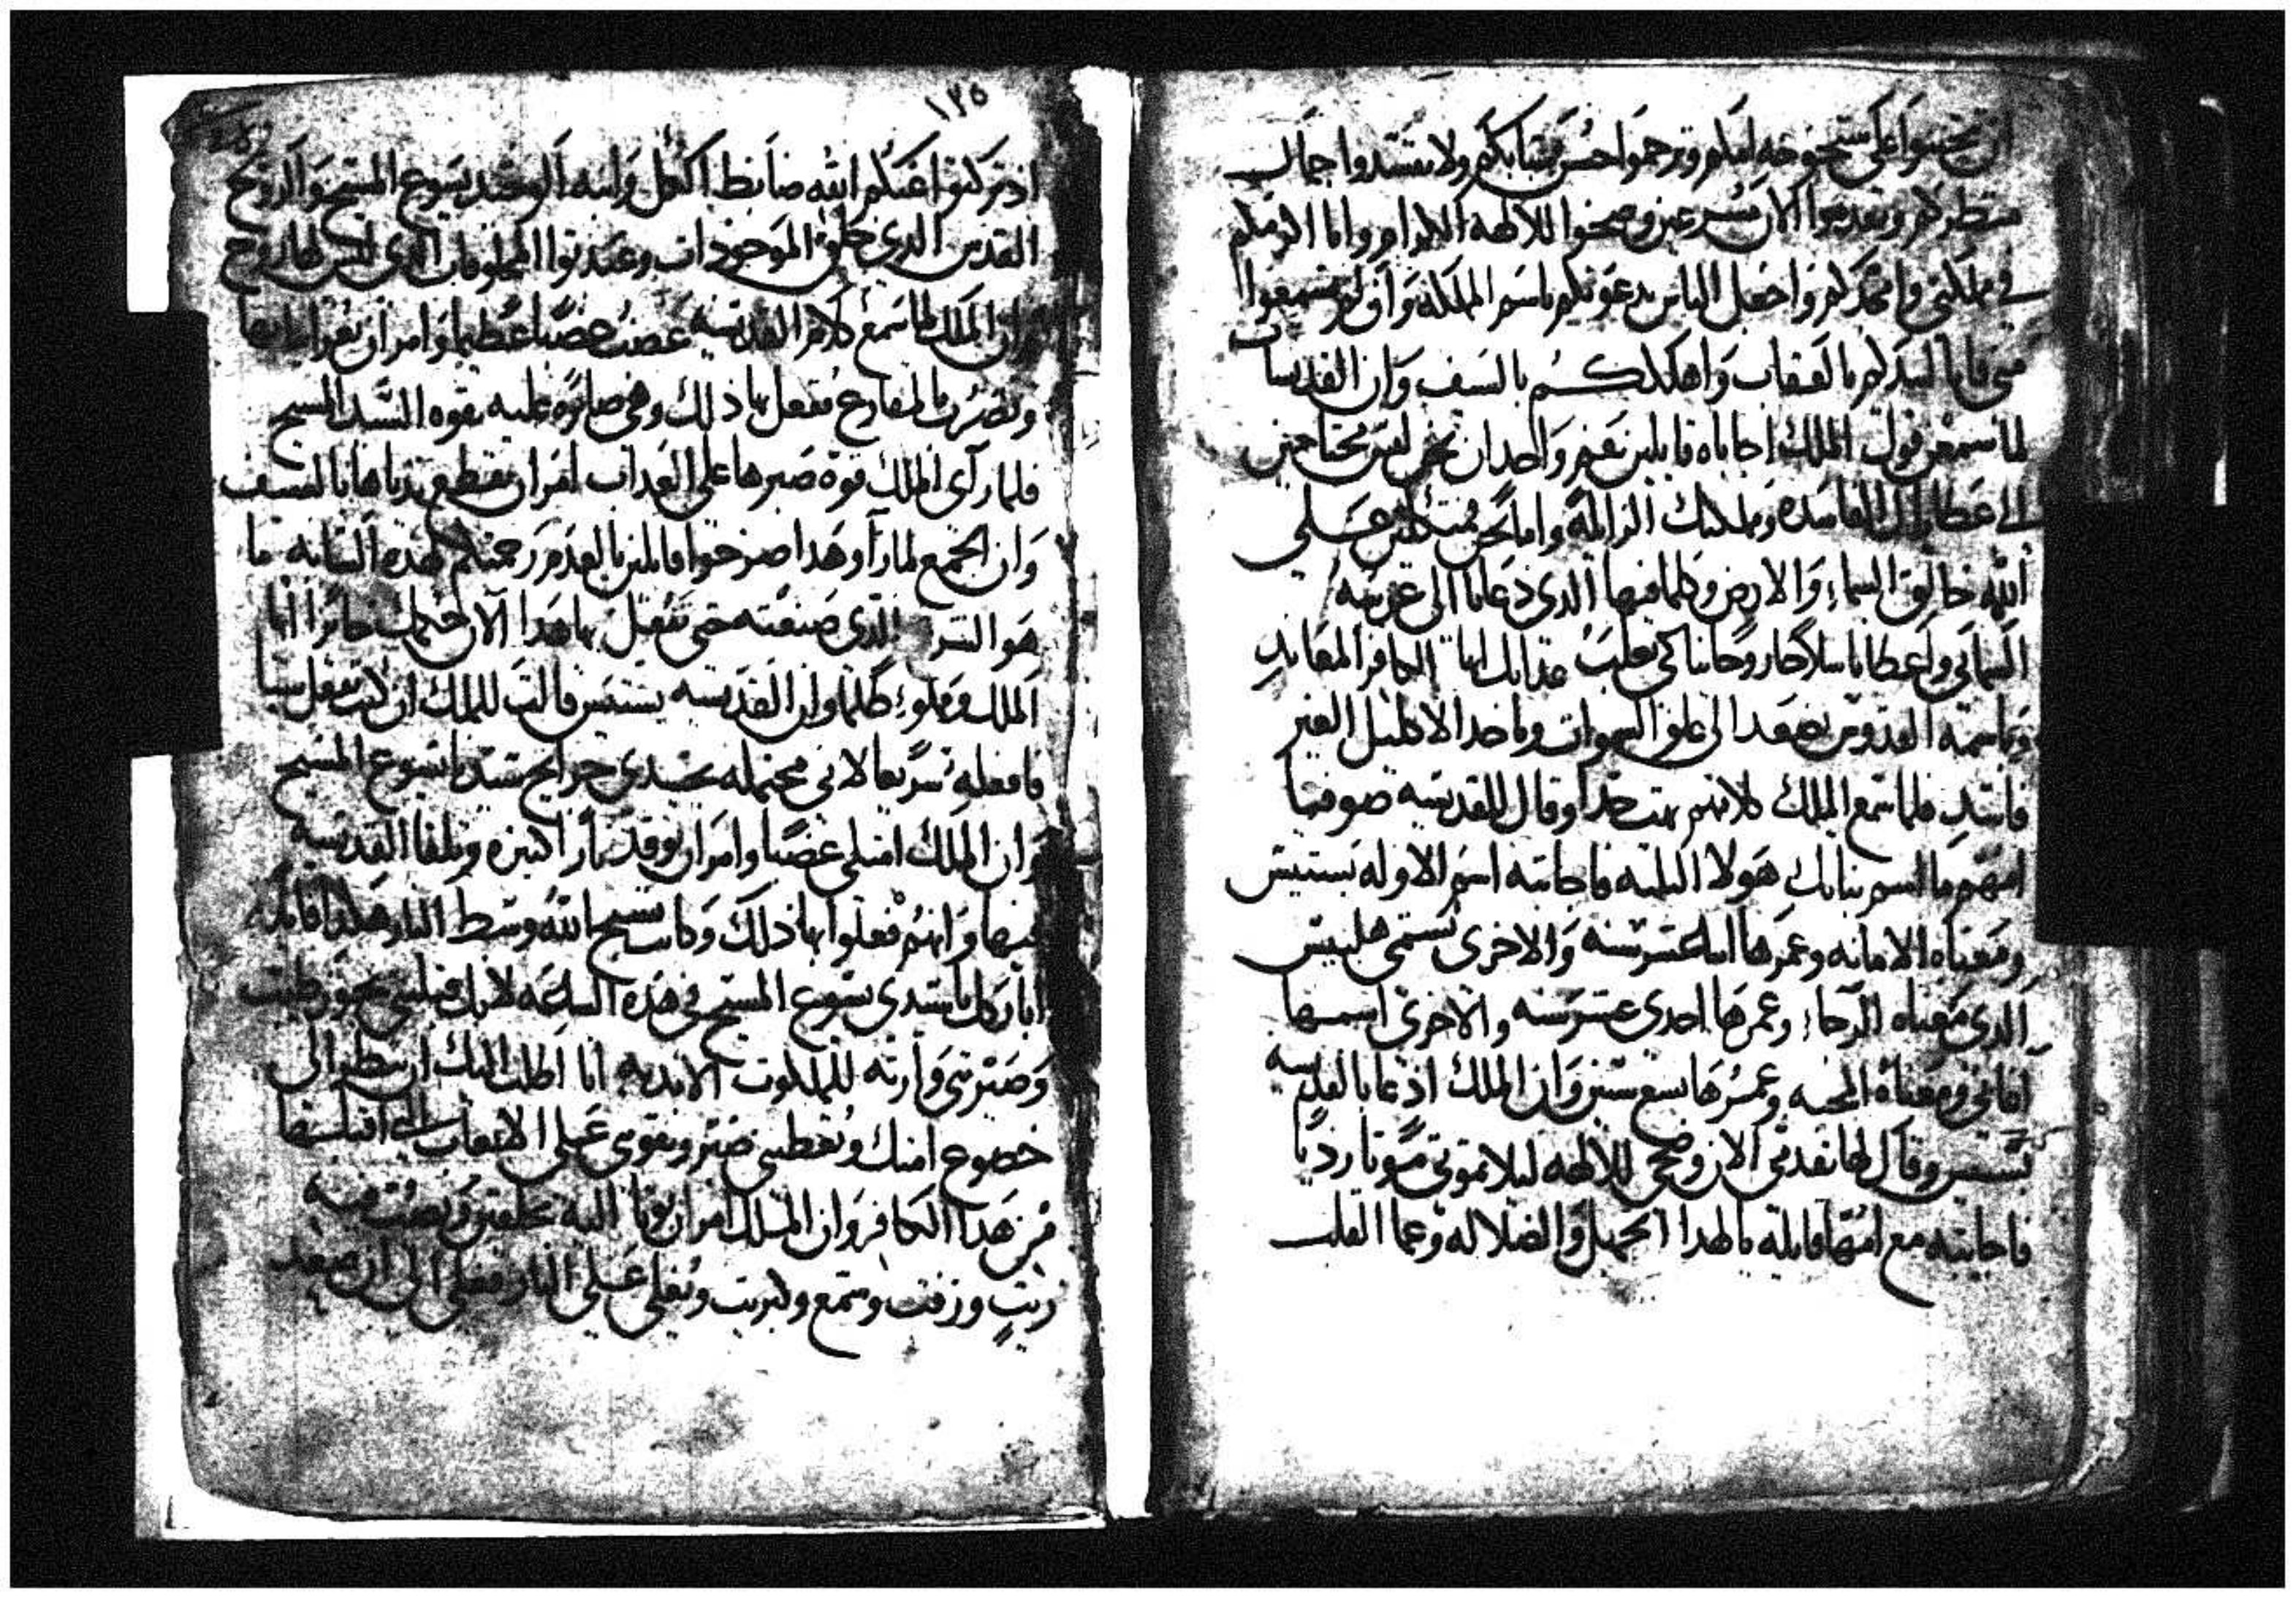 ان تحننوا على شيخوخه امكم وترحموا حسن شبابكم ولا تفسدوا جمال
منظركم وتقدموا الان مسرعين وضحوا للالهة الكرام وانا ارملكم
في مملكتي وامجدكم واجعل الناس يدعونكم باسم المملكة وان لم تسمعوا
مني فانا ابيدكم بالعقاب واهلككم بالسيف وان القديسات
لما سمعن قول الملك اجاباه قايلين بفم واحد ان نحن ليس محتاجين
الى عطاياك الفاسده ومملكتك الزايلة واما نحن متكلين على
الله خالق السماء والارض وكلما فيها الدي دعانا الى عربسه
السماي واعطانا سلاحا روحانيا كي نغلب عذابك ايها الكافر المعاند
وباسمه القدوس نصعد الى علو السموات وناخد الاكليل الغير
فاسد فلما سمع الملك كلامهم بهت جدا وقال للقديسه صوفيا
امهم ما اسم بناتك هولا التلته فاجابته اسم الاوله بستيس
ومعناه الامانه وعمرها اتنا عشر سنه والاخرى تسمى هلبيس
الدي معناه الرجاء وعمرها احدى عشر سنه والاخرى اسمها
اغابي ومعناه المحبه وعمرها تسع سنين وان الملك ادعا بالقديسه
بستس وقال لها تقدمي الان وضحي للالهه ليلا تموتي موتا رديا
فاجابته مع امها قايله يا لهدا الجهل والضلاله وعما القلب
١٢٥
اذ تركتوا عنكم الله ضابط الكل وابنه الوحيد يسوع المسيح والروح
القدس الدي خلق الموجودات وعبدتوا المخلوقات الدي ليس لها روح
وان الملك لما سمع كلام القديسه غضب غضبا عظيما وامر ان تعرا ثيابها
وتضرب بالمقارع ففعل بها ذلك وهي صابره عليه بقوه السيد المسيح
فلما رآى الملك قوة صبرها على العداب امر ان تقطع يدياها بالسيف
وان الجمع لما رآو هدا صرخوا قايلين يا لعدم رحمتكم لهده الشابه ما
هو الشر الدي صنعته حتى تفعل بها هدا الآن حكمك جايرا ايها
الملك ومملو ظلما وان القديسه بستس قالت للملك ان كنت تفعل شيا
فافعله سريعا لاني محتمله بجسدي جرايح سيدنا يسوع المسيح
وان الملك امتلى غضبا وامر ان توقد نار كبيره وتلقا القديسه
فيها وانهم فعلوا بها ذلك وكانت تسبح الله وسط النار هكدا قايله
ابارك يا سيدي يسوع المسيح في هذه الساعه لانك قبلتني بخور طيب
وصيرتني وارثه للملكوت الابديه انا اطلب اليك ان تنظر الى
خضوع امتك وتعطيني صبر وتقوي على الاتعاب التي اقبلها
من هدا الكافر وان الملك امر ان يوتا اليه بحلقين ويصب فيه
زيت وزفت وشمع وكبريت وتغلي على النار فغلي الى ان صعد